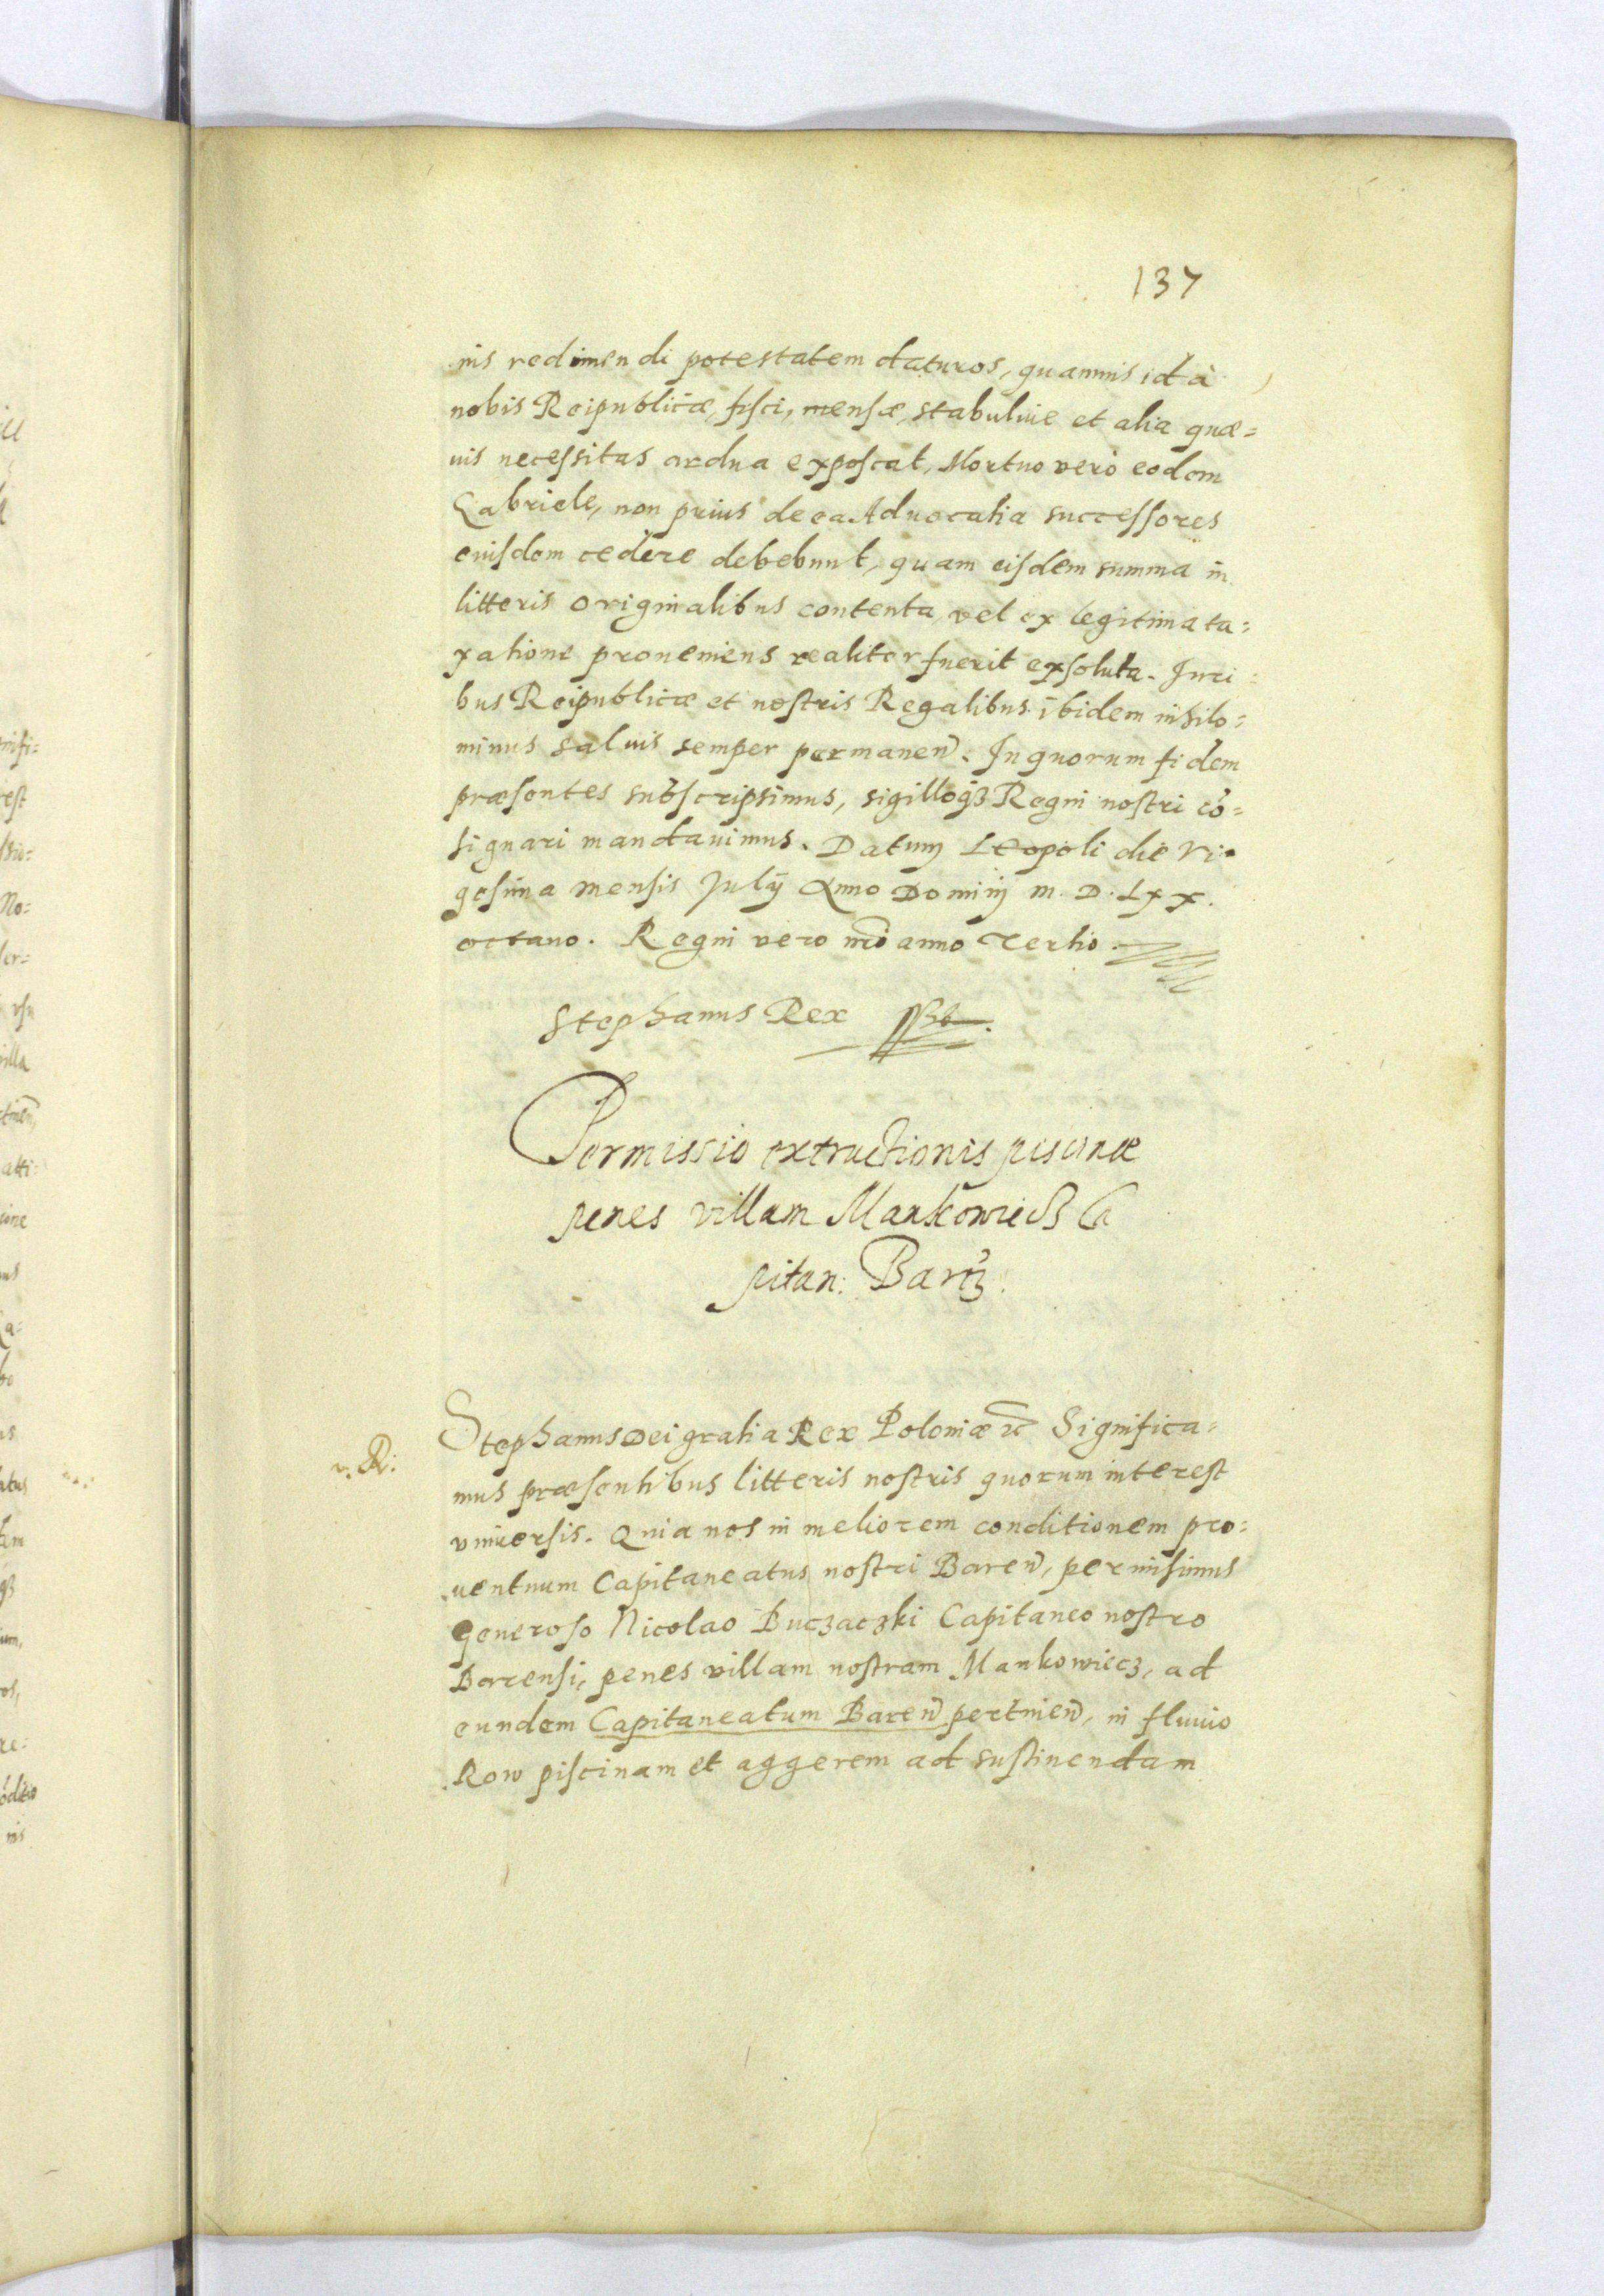 137
nis redimendi potestatem daturos, quamuis id à
nobis Reipublicæ, fisci, mensæ, stabuliue et alia quæ=
uis necessitas ardua exposcat, Mortuo verò eodem
Gabriele, non prius de ea Aduocatia successores
eiusdem cedere debebunt, quam eisdem summa in
litteris originalibus contenta, vel ex legitima ta=
xatione proueniens realiter fuerit exsoluta. Juri=
bus Reipublicæ et nostris Regalibus ibidem nihilo=
minus saluis semper permaneñ. In quorum fidem
præsentes subscripsimus, sigilloqȝ Regni nostri cõ=
signari mandauimus. Datum Leopoli die Vi=
gesima mensis Julij Anno Domini M. D. Lxx.
octauo. Regni vero nr̃i anno Tertio.
Stephanus Rex
Permissio extructionis piscinæ
penes villam Mankowiecz Ca
pitan: Bareñ.
v. R:
Stephanus Dei gratia Rex Poloniæ ꝛc̃ Significa=
mus præsentibus litteris nostris quorum interest
vniuersis. Quia nos in meliorem conditionem pro=
uentuum Capitaneatus nostri Bareñ, permisimus
Generoso Nicolao Buczaczki Capitaneo nostro
Barensi, penes villam nostram Mankowiecz, ad
eundem Capitaneatum Bareñ pertineñ, in fluuio
Row piscinam et aggerem ad sustinendam